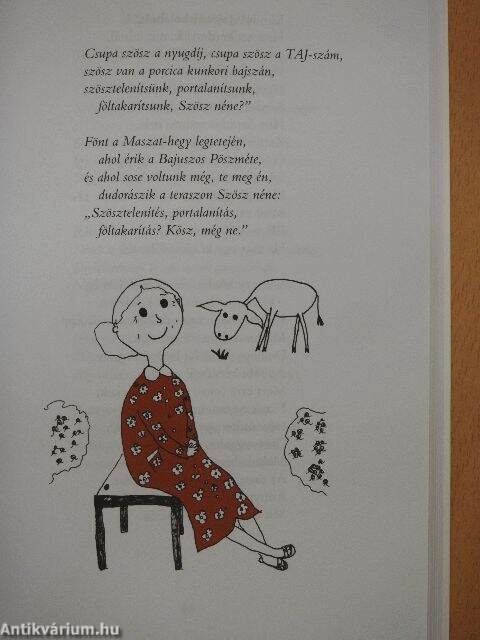 Csupa szösz a nyugdíj, csupa szösz a TAJ-szám,
szösz van a porcica kunkori bajszán,
szösztelenítsünk, portalanítsunk,
föltakarítsunk, Szösz néne?"
Fönt a Maszat-hegy legtetején,
ahol érik a Bajuszos Pöszméte,
és ahol sose voltunk még, te meg én,
dudorászik a teraszon Szösz néne:
„Szösztelenítés, portalanítás,
föltakarítás? Kösz, még ne."
Antikvárium.hu